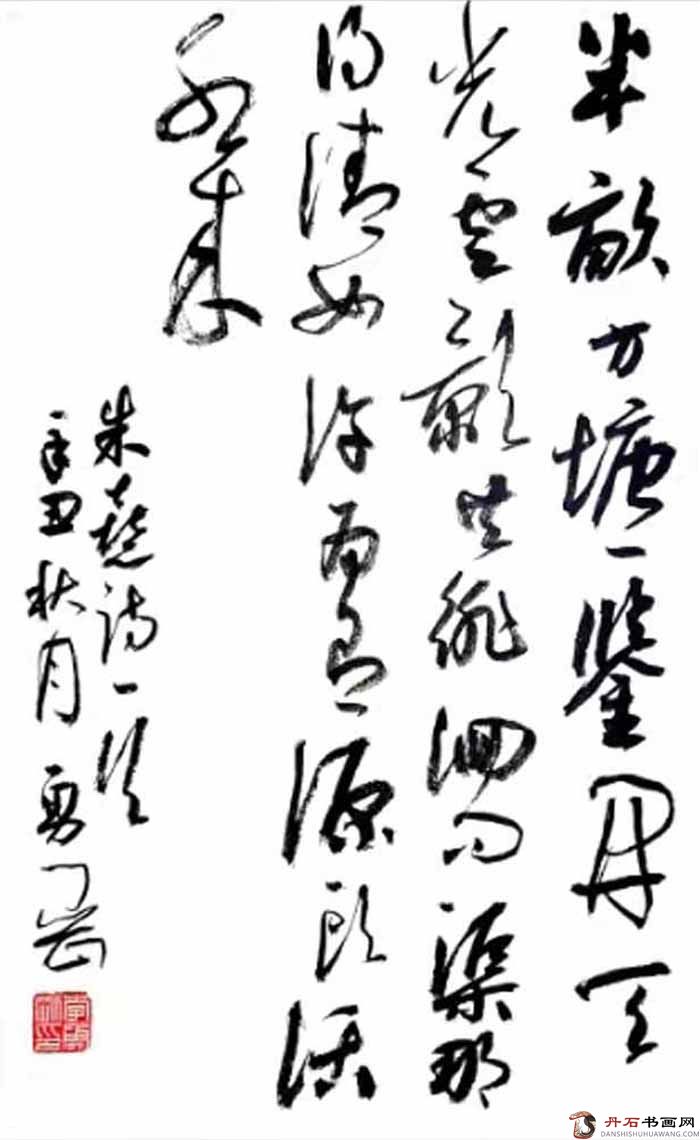 半畝方塘一鑒開天
光雲影共徘徊問渠那
得清如許為有源頭活
水來
朱熹詩一首
辛丑秋月勇
丹石书画网
DANSHISHUHUAWANG.COM